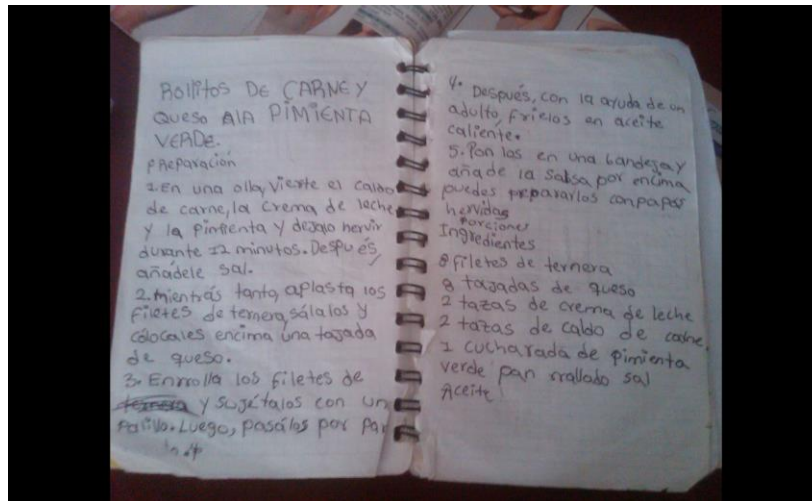 Rollitos DE CARNE Y
Queso AlA PIMIENTA
VERDE.
PReparación
1. En una olla, Vierte el caldo
de carne, la crema de leche
y la pimienta y dejalo hervir
durante 12 minutos. Después,
añádele sal.
2. mientras tanto, aplasta los
filetes de ternera, sálalos y
colocales encima una tajada
de queso.
3. Enrrolla los filetes de
y sujétalos con un
palillo. Luego, pasálos por pan
4. Después, con la ayuda de un
adulto, frielos en aceite
caliente.
5. Pon los en una bandeja y
añade la salsa por encima
puedes prepararlos con papas
hervidas
porciones
Ingredientes
8 filetes de ternera
8 tajadas de queso
2 tazas de crema de leche
2 tazas de caldo de carne.
1 cucharada de pimienta
verde pan rrallado sal
Aceite